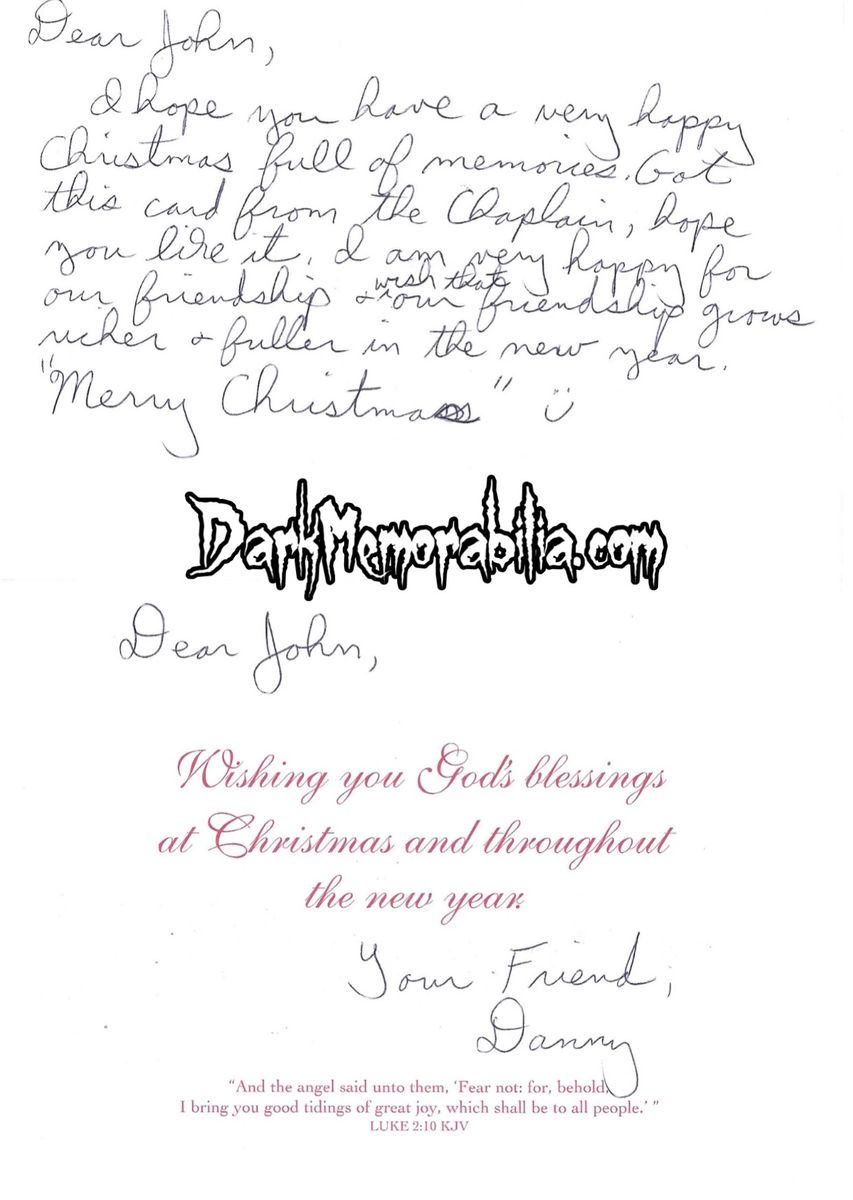 Dear John,
I hope you have a very happy
Christmas full of memories. Got
this card from the Chaplain, hope
you like it. I am very happy for
our friendship & wish that our friendship grows
richer & fuller in the new year.
"Merry Christmas" ☺
DarkMemorabilia.com
Dear John,
Wishing you God's blessings
at Christmas and throughout
the new year.
Your Friend,
Danny
"And the angel said unto them, 'Fear not: for, behold,
I bring you good tidings of great joy, which shall be to all people.' "
LUKE 2:10 KJV